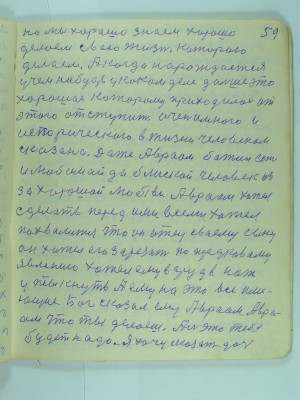 59
но мы хорошо знаем хорошо
делаем свою жизнь которого
делаем. А когда нарождается
у кем нибудь у каком деле дальше это
хорошая которому приходилося от
этого отступить и
исторического в жизни человеком
сказано. Даже Авраам
и любимай да близкай человек
за хорошай любви. Авраам хотел
сделать перед ими всеми хотел
похвалится что он отец своему сыну
он хотел его зарезать по
явлению хотел ему в груде нож
уткнуть А ему на это все
Бог сказал ему Авраам Авра-
ам что ты делаеш. Аль это тебе
будет надо. Я хочу сказать